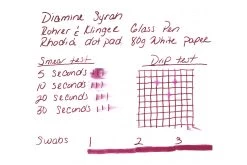 Diamine Syrah
Rohrer & Klinger Glass Pen
Rhodia dotpad 80g White paper
Smear test
Drip test
5 seconds
10 seconds
20 seconds
30 seconds
Swabs 1 2 3